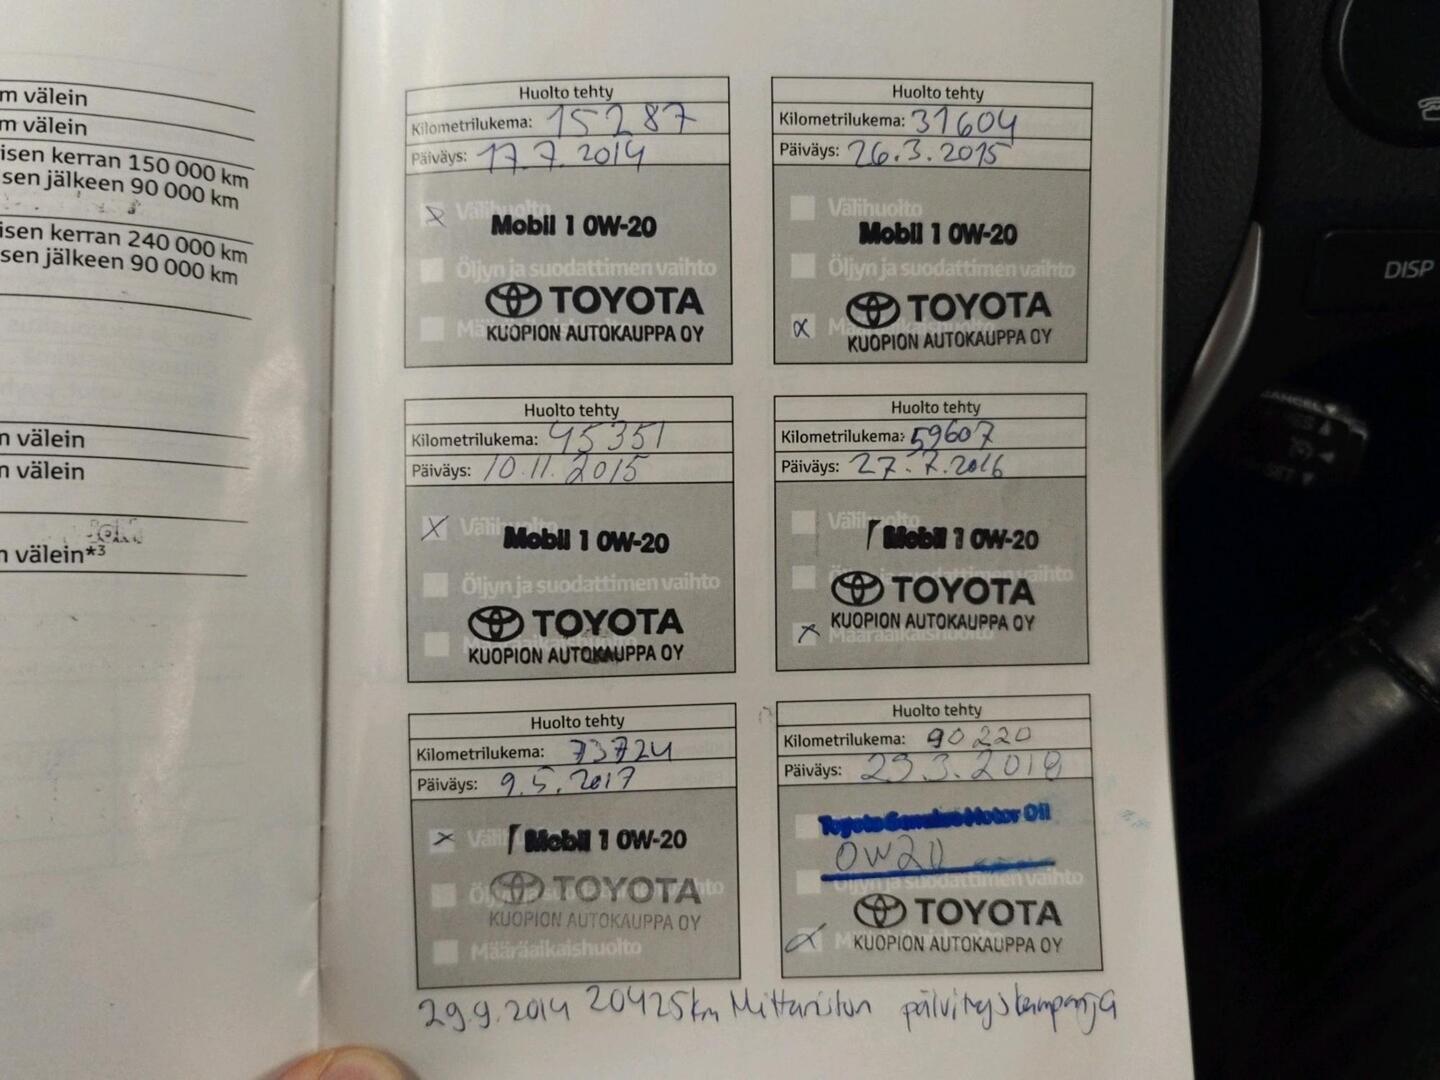 m välein
m välein
isen kerran 150 000 km
sen jälkeen 90 000 km
isen kerran 240 000 km
sen jälkeen 90 000 km
n välein
n välein
n välein*3
Huolto tehty
Kilometrilukema: 15287
Päiväys: 17.7.2014
x Välihuolto
Mobil 1 0W-20
Öljyn ja suodattimen vaihto
TOYOTA
Määräaikaishuolto
KUOPION AUTOKAUPPA OY
Huolto tehty
Kilometrilukema: 31604
Päiväys: 26.3.2015
Välihuolto
Mobil 1 0W-20
Öljyn ja suodattimen vaihto
TOYOTA
x Määräaikaishuolto
KUOPION AUTOKAUPPA OY
Huolto tehty
Kilometrilukema: 45351
Päiväys: 10.11.2015
x Välihuolto
Mobil 1 0W-20
Öljyn ja suodattimen vaihto
TOYOTA
Määräaikaishuolto
KUOPION AUTOKAUPPA OY
Huolto tehty
Kilometrilukema: 59607
Päiväys: 27.7.2016
Välihuolto
Mobil 1 0W-20
Öljyn ja suodattimen vaihto
TOYOTA
KUOPION AUTOKAUPPA OY
x Määräaikaishuolto
Huolto tehty
Kilometrilukema: 73724
Päiväys: 9.5.2017
x Välihuolto
Mobil 1 0W-20
Öljyn ja suodattimen vaihto
TOYOTA
KUOPION AUTOKAUPPA OY
Määräaikaishuolto
Huolto tehty
Kilometrilukema: 90220
Päiväys: 29.3.2018
Toyota Genuine Motor Oil
0W20
Öljyn ja suodattimen vaihto
TOYOTA
x Määräaikaishuolto
KUOPION AUTOKAUPPA OY
29.9.2014 20425km Mittariston päivityskampanja
DISP
CANCEL
RES
SET